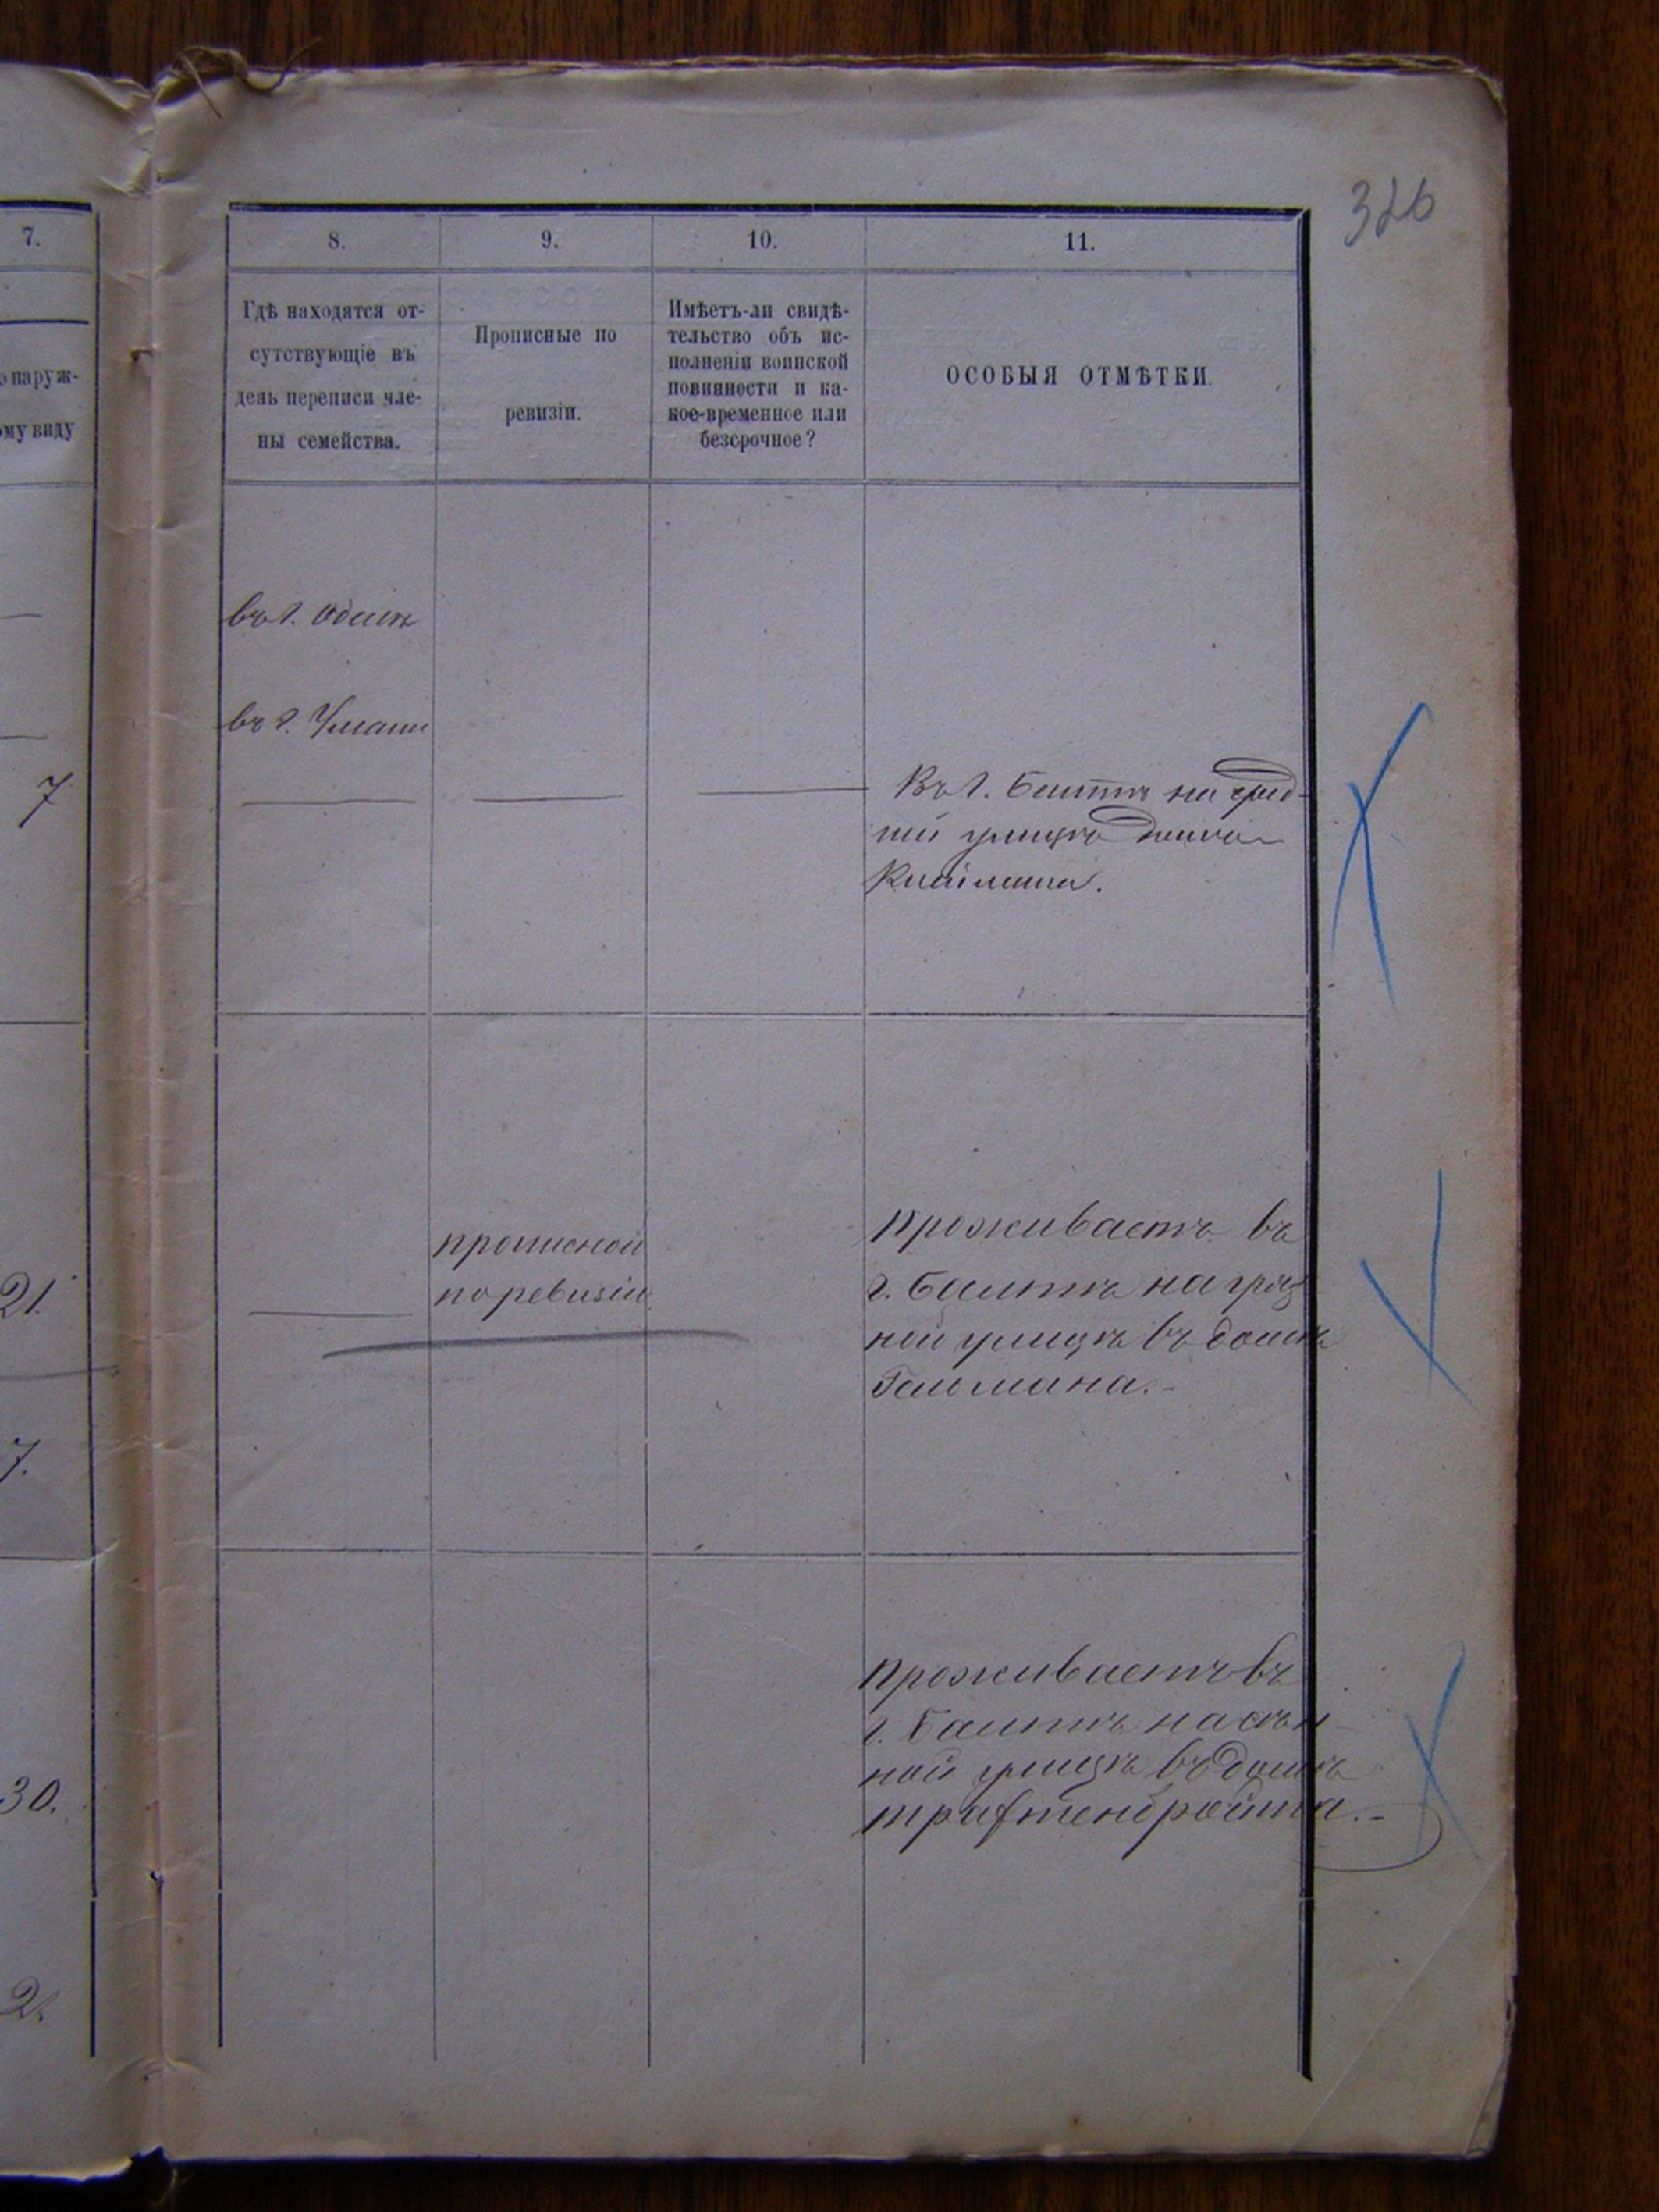 326
7.
8.
9.
10.
11.
о наруж-
ому виду
Гдѣ находятся от-
сутствующіе въ
день переписи чле-
ны семейства.
Прописные по
ревизіи.
Имѣетъ-ли свидѣ-
тельство объ ис-
полненіи воинской
повинности и ка-
кое-временное или
безсрочное?
ОСОБЫЯ ОТМѢТКИ.
въ г. Одессѣ
въ г. Умани
7
Въ г. Балтѣ на
ней улицѣ домъ
21.
прописной
по ревизіи
проживаетъ въ
г. Балтѣ на гряз
ной улицѣ въ домѣ
Гальмана.-
7.
30.
проживаетъ въ
г. Балтѣ на сѣн
ной улицѣ въ домѣ
трафтенбройта.-
2.